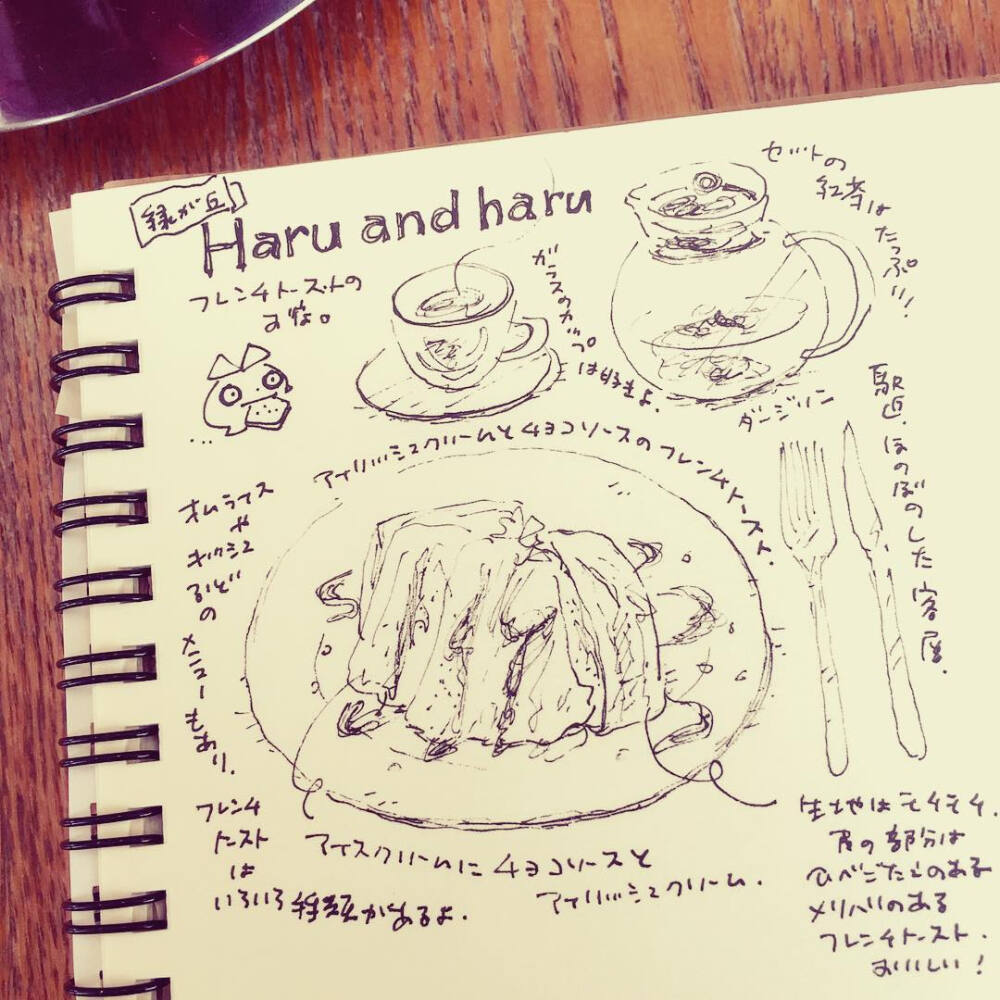 緑が丘
Haru and haru
フレンチトーストの
お店。
ガラスのカップ
は好きよ。
セットの
紅茶は
たっぷり!!
ダージリン
駅近。ほのぼのした
アイリッシュクリームとチョコソースのフレンチトースト。
オムライス
や
キッシュ
などの
メニューもあり。
フレンチ
トースト
は
いろいろ種類があるよ。
アイスクリームにチョコソースと
アイリッシュクリーム。
生地やは
の部分は
ごたえのある
メリハリのある
フレンチトースト。
おいしい!